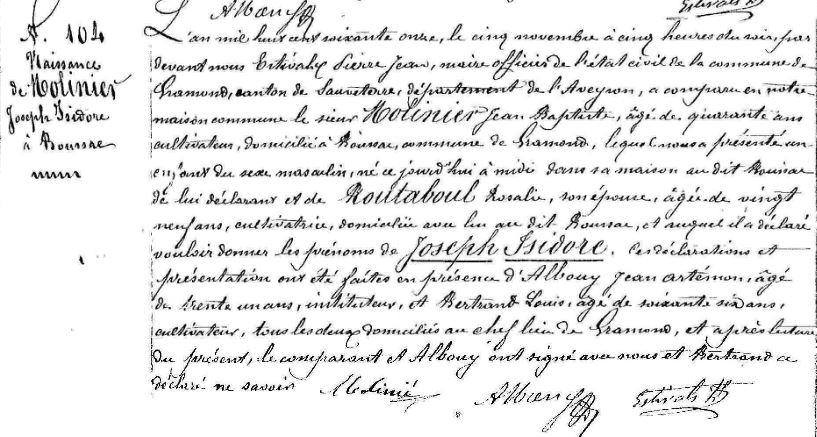 Albouy
Estivals
N. 104
Naissance
de Molinier
Joseph Isidore
à Roussac
L'an mil huit cent soixante onze, le cinq novembre à cinq heures du soir, par
devant nous Estivals Pierre Jean, maire officier de l'état civil de la commune de
Gramond, canton de Sauveterre, département de l'Aveyron, a comparu en notre
maison commune le sieur Molinier Jean Baptiste, âgé de quarante ans
cultivateur, domicilié à Roussac, commune de Gramond, lequel nous a présenté un
enfant du sexe masculin, né ce jourd'hui à midi dans sa maison au dit Roussac
de lui déclarant et de Moutaboul Rosalie, son épouse, âgée de vingt
neuf ans, cultivatrice, domiciliée avec lui au dit Roussac, et auquel il a déclaré
vouloir donner les prénoms de Joseph Isidore. Ces déclarations et
présentation ont été faites en présence d'Albouy Jean artémon, âgé
de trente un ans, instituteur, et Bertrand Louis, âgé de soixante six ans,
cultivateur, tous les deux domiciliés au chef lieu de Gramond, et après lecture
du présent, le comparant et Albouy ont signé avec nous et Bertrand a
déclaré ne savoir Molinié Albouy Estivals